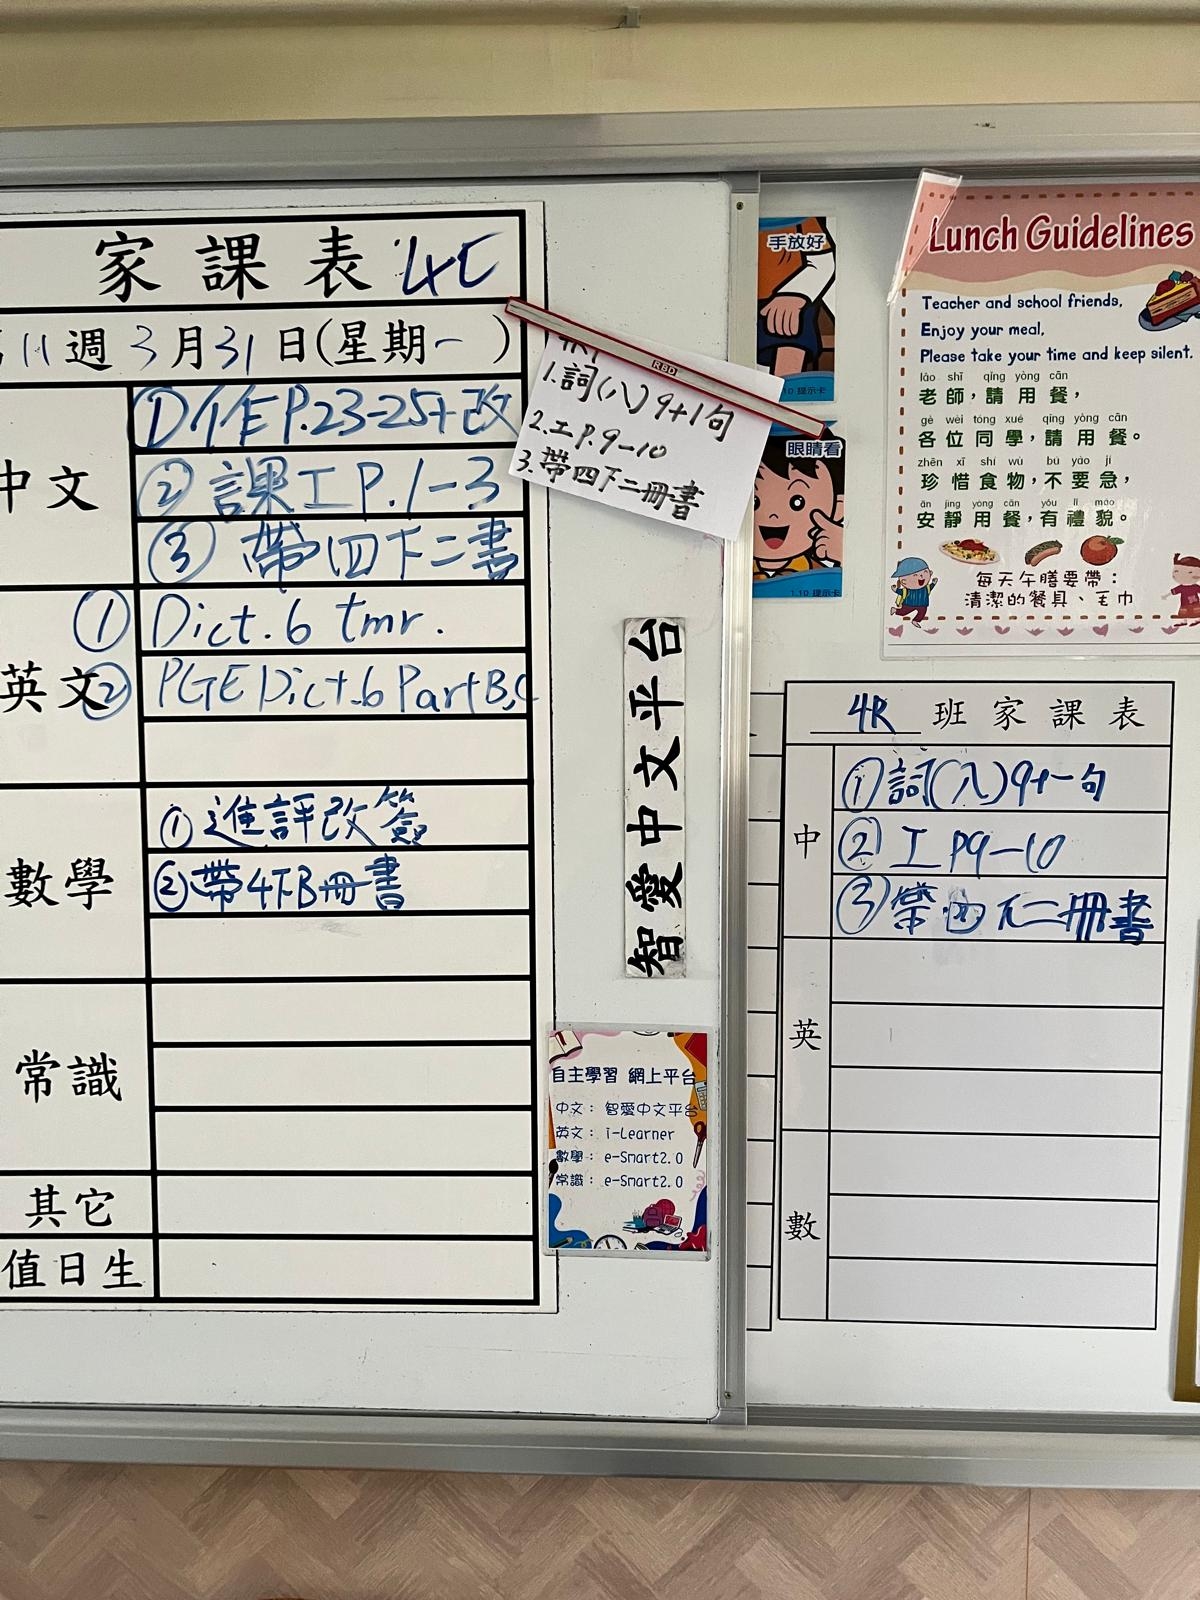 家課表 4C
11週3月31日(星期一)
中文
①作 P.23-25+改
②課工P.1-3
③帶四下二書
英文
① Dict. 6 tmr.
② PGE Dict. 6 Part B, C
數學
①進評改簽
②帶4下B冊書
常識
其它
值日生
1.詞(八)9+1句
2.工P.9-10
3.帶四下二冊書
智愛中文平台
自主學習 網上平台
中文： 智愛中文平台
英文： i-Learner
數學： e-Smart2.0
常識： e-Smart2.0
手放好
1.10 提示卡
眼睛看
1.10 提示卡
Lunch Guidelines
Teacher and school friends,
Enjoy your meal,
Please take your time and keep silent.
lǎo shī qǐng yòng cān
老師，請用餐，
gè wèi tóng xué qǐng yòng cān
各位同學，請用餐。
zhēn xī shí wù bú yào jí
珍惜食物，不要急，
ān jìng yòng cān yǒu lǐ mào
安靜用餐，有禮貌。
每天午膳要帶：
清潔的餐具、毛巾
4R 班家課表
中
①詞(八)9+一句
②工 P9-10
③帶四下二冊書
英
數